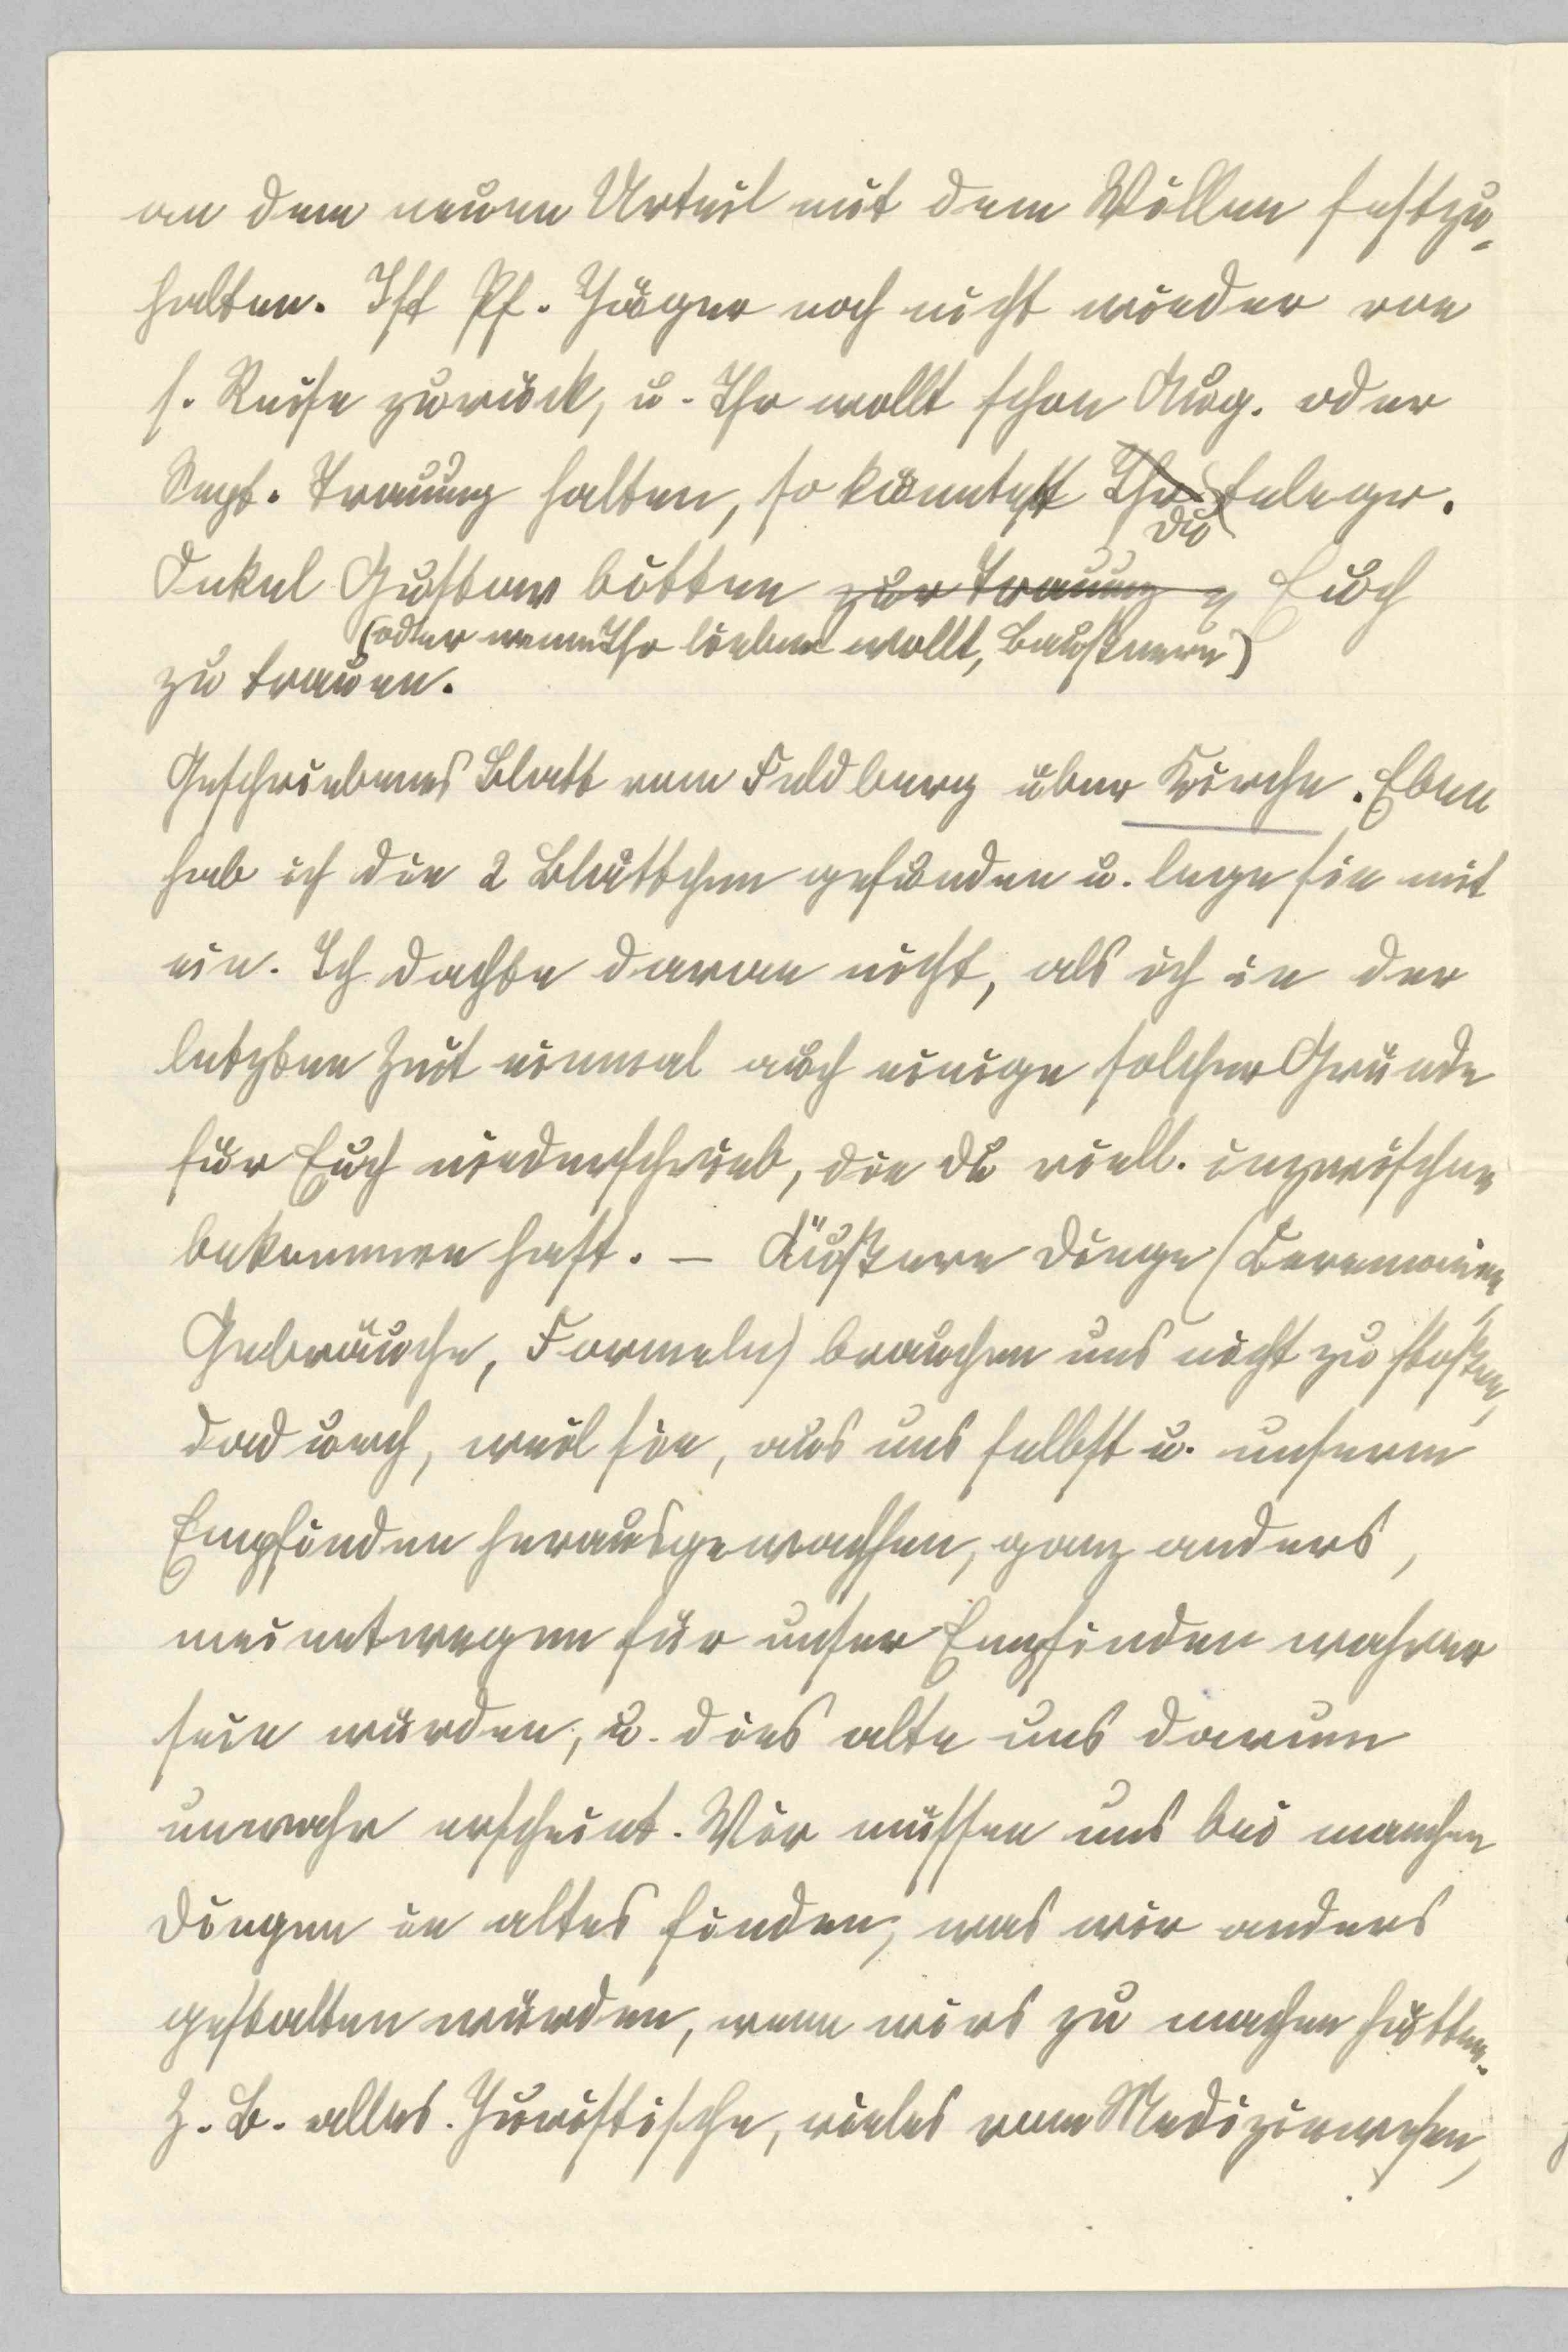 an dem neuen Urteil mit dem Willen festzu-
halten. Ist Pf. Jäger noch nicht wieder von
s. Reise zurück, u. Ihr wollt schon Aug. oder
Sept. Trauung halten, so könntest Ihr telegr.
du
Onkel Gustav bitten zur Trauung Euch
(oder wenn Ihr lieber wollt, Baußnern)
zu trauen.
Geschriebenes Blatt vom Feldberg über Kirche. Eben
hab ich die 2 Blättchen gefunden u. lege sie mit
ein. Ich dachte daran nicht, als ich in der
letzten Zeit einmal auch einige solcher Gründe
für Euch niederschrieb, die du viell. inzwischen
bekommen hast. – Äußere Dinge (Ceremonien,
Gebräuche, Formeln) brauchen uns nicht zu stoßen,
dadurch, weil sie, aus uns selbst u. unserm
Empfinden herausgewachsen, ganz anders,
meinetwegen für unser Empfinden wahrer
sein würden, u. dies alte uns darum
unwahr erscheint. Wir müssen uns bei manchen
Dingen in altes finden, was wir anders
gestalten würden, wenn wirs zu machen hätten.
Z. B. alles Juristische, vieles vom Medizinwesen,